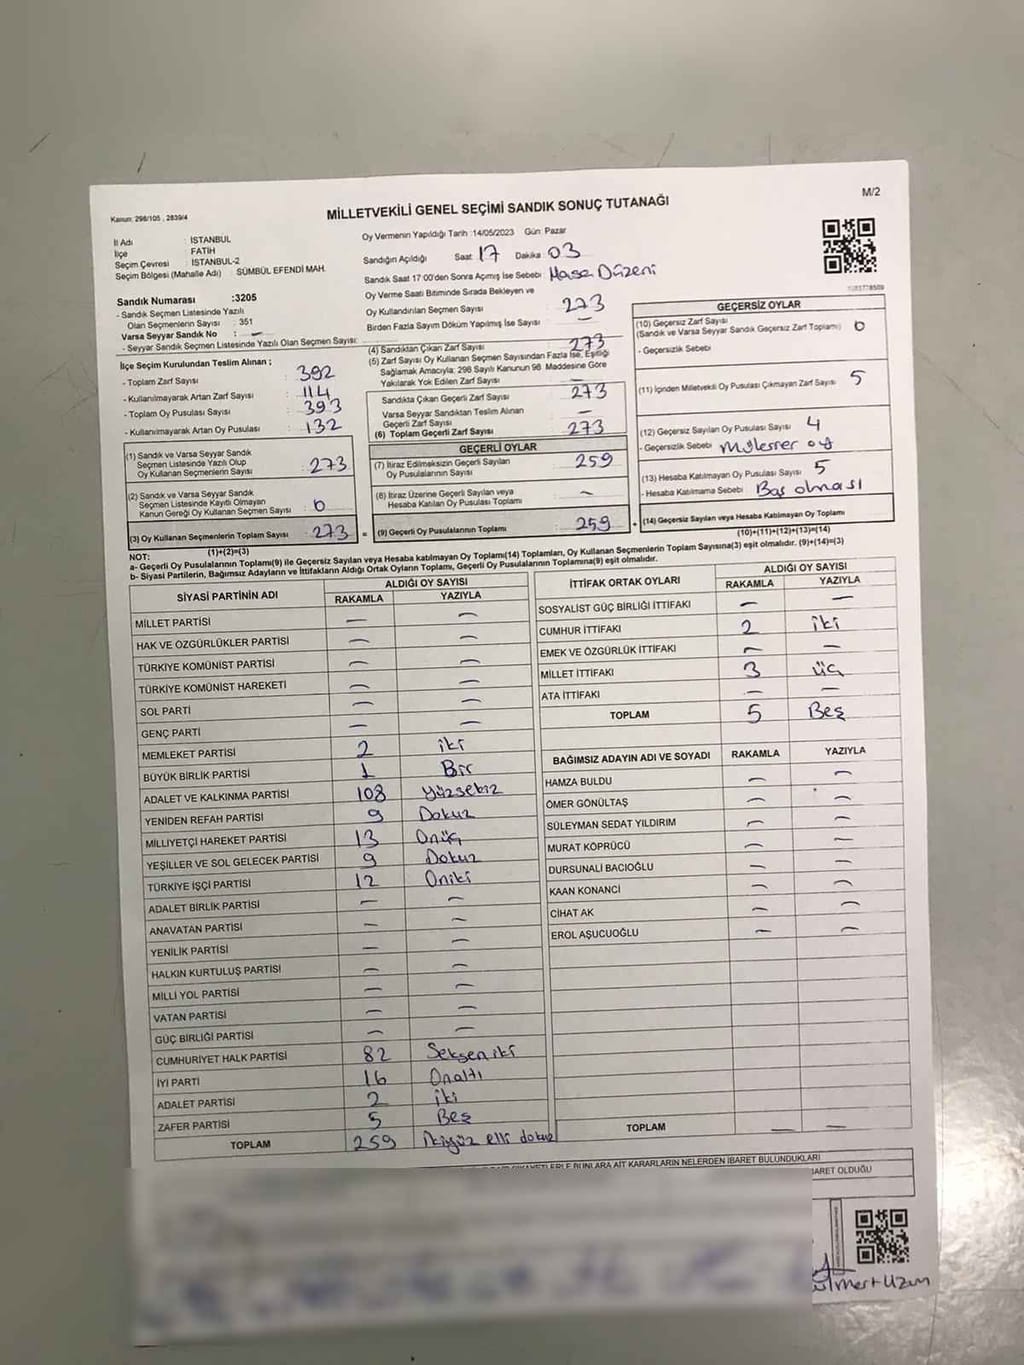 Kanun: 298/105 , 2839/4
M/2
MİLLETVEKİLİ GENEL SEÇİMİ SANDIK SONUÇ TUTANAĞI
İl Adı : İSTANBUL
İlçe : FATİH
Seçim Çevresi : İSTANBUL-2
Seçim Bölgesi (Mahalle Adı) : SÜMBÜL EFENDİ MAH.
Sandık Numarası :3205
- Sandık Seçmen Listesinde Yazılı
Olan Seçmenlerin Sayısı : 351
Varsa Seyyar Sandık No : —
- Seyyar Sandık Seçmen Listesinde Yazılı Olan Seçmen Sayısı:
Oy Vermenin Yapıldığı Tarih :14/05/2023 Gün: Pazar
Sandığın Açıldığı Saat: 17 Dakika: 03
Sandık Saat 17:00'den Sonra Açmış İse Sebebi: Masa Düzeni
Oy Verme Saati Bitiminde Sırada Bekleyen ve
Oy Kullandırılan Seçmen Sayısı 273
Birden Fazla Sayım Döküm Yapılmış İse Sayısı —
İlçe Seçim Kurulundan Teslim Alınan ;
- Toplam Zarf Sayısı : 392
- Kullanılmayarak Artan Zarf Sayısı : 114
- Toplam Oy Pusulası Sayısı : 393
- Kullanılmayarak Artan Oy Pusulası : 132
(1) Sandık ve Varsa Seyyar Sandık
Seçmen Listesinde Yazılı Olup
Oy Kullanan Seçmenlerin Sayısı : 273
(2) Sandık ve Varsa Seyyar Sandık
Seçmen Listesinde Kayıtlı Olmayan
Kanun Gereği Oy Kullanan Seçmen Sayısı : 0
(3) Oy Kullanan Seçmenlerin Toplam Sayısı : 273
(1)+(2)=(3)
(4) Sandıktan Çıkan Zarf Sayısı 273
(5) Zarf Sayısı Oy Kullanan Seçmen Sayısından Fazla İse, Eşitliği
Sağlamak Amacıyla; 298 Sayılı Kanunun 98. Maddesine Göre
Yakılarak Yok Edilen Zarf Sayısı —
Sandıkta Çıkan Geçerli Zarf Sayısı 273
Varsa Seyyar Sandıktan Teslim Alınan
Geçerli Zarf Sayısı —
(6) Toplam Geçerli Zarf Sayısı 273
GEÇERLİ OYLAR
(7) İtiraz Edilmeksizin Geçerli Sayılan
Oy Pusulalarının Sayısı 259
(8) İtiraz Üzerine Geçerli Sayılan veya
Hesaba Katılan Oy Pusulası Toplamı —
= (9) Geçerli Oy Pusulalarının Toplamı 259
GEÇERSİZ OYLAR
(10) Geçersiz Zarf Sayısı
(Sandık ve Varsa Seyyar Sandık Geçersiz Zarf Toplamı) 0
- Geçersizlik Sebebi
(11) İçinden Milletvekili Oy Pusulası Çıkmayan Zarf Sayısı 5
(12) Geçersiz Sayılan Oy Pusulası Sayısı 4
- Geçersizlik Sebebi oy
(13) Hesaba Katılmayan Oy Pusulası Sayısı 5
- Hesaba Katılmama Sebebi Boş olması
+ (14) Geçersiz Sayılan veya Hesaba Katılmayan Oy Toplamı
(10)+(11)+(12)+(13)=(14)
NOT:
a- Geçerli Oy Pusulalarının Toplamı(9) ile Geçersiz Sayılan veya Hesaba katılmayan Oy Toplamı(14) Toplamları, Oy Kullanan Seçmenlerin Toplam Sayısına(3) eşit olmalıdır. (9)+(14)=(3)
b- Siyasi Partilerin, Bağımsız Adayların ve İttifakların Aldığı Ortak Oyların Toplamı, Geçerli Oy Pusulalarının Toplamına(9) eşit olmalıdır.
SİYASİ PARTİNİN ADI ALDIĞI OY SAYISI
RAKAMLA YAZIYLA
MİLLET PARTİSİ — —
HAK VE ÖZGÜRLÜKLER PARTİSİ — —
TÜRKİYE KOMÜNİST PARTİSİ — —
TÜRKİYE KOMÜNİST HAREKETİ — —
SOL PARTİ — —
GENÇ PARTİ — —
MEMLEKET PARTİSİ 2 iki
BÜYÜK BİRLİK PARTİSİ 1 Bir
ADALET VE KALKINMA PARTİSİ 108 Yüzsekiz
YENİDEN REFAH PARTİSİ 9 Dokuz
MİLLİYETÇİ HAREKET PARTİSİ 13 Onüç
YEŞİLLER VE SOL GELECEK PARTİSİ 9 Dokuz
TÜRKİYE İŞÇİ PARTİSİ 12 Oniki
ADALET BİRLİK PARTİSİ — —
ANAVATAN PARTİSİ — —
YENİLİK PARTİSİ — —
HALKIN KURTULUŞ PARTİSİ — —
MİLLİ YOL PARTİSİ — —
VATAN PARTİSİ — —
GÜÇ BİRLİĞİ PARTİSİ — —
CUMHURİYET HALK PARTİSİ 82 Seksen iki
İYİ PARTİ 16 Onaltı
ADALET PARTİSİ 2 iki
ZAFER PARTİSİ 5 Beş
TOPLAM 259 ikiyüz elli dokuz
İTTİFAK ORTAK OYLARI ALDIĞI OY SAYISI
RAKAMLA YAZIYLA
SOSYALİST GÜÇ BİRLİĞİ İTTİFAKI — —
CUMHUR İTTİFAKI 2 iki
EMEK VE ÖZGÜRLÜK İTTİFAKI — —
MİLLET İTTİFAKI 3 üç
ATA İTTİFAKI — —
TOPLAM 5 Beş
BAĞIMSIZ ADAYIN ADI VE SOYADI RAKAMLA YAZIYLA
HAMZA BULDU — —
ÖMER GÖNÜLTAŞ — —
SÜLEYMAN SEDAT YILDIRIM — —
MURAT KÖPRÜCÜ — —
DURSUNALİ BACIOĞLU — —
KAAN KONANCİ — —
CİHAT AK — —
EROL AŞUCUOĞLU — —
TOPLAM — —
BUNLARA AİT KARARLARIN NELERDEN İBARET BULUNDUKLARI
İBARET OLDUĞU
Uzun